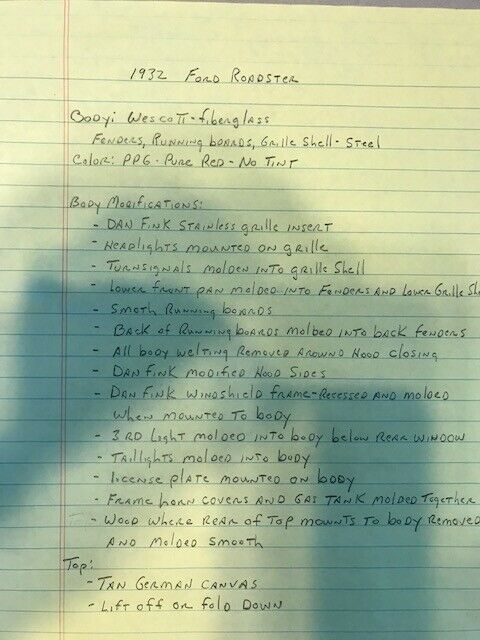 1932 Ford Roadster
Body: Wescott-fiberglass
Fenders, Running boards, Grille Shell-Steel
Color: PPG-Pure Red-No Tint
Body Modifications:
- Dan Fink Stainless grille insert
- Headlights mounted on grille
- Turnsignals molded into grille Shell
- Lower front pan molded into Fenders and Lower Grille Sh
- Smoth Running boards
- Back of Running boards molded into back fenders
- All body welting Removed Around Hood closing
- Dan Fink modified Hood Sides
- Dan Fink windshield frame-Recessed and molded
when mounted to body
- 3RD Light molded into body below Rear window
- Taillights molded into body
- License plate mounted on body
- Frame horn covers and gas tank molded together
- Wood where Rear of Top mounts to body Removed
And molded smooth
Top:
- Tan German Canvas
- Lift off or fold down